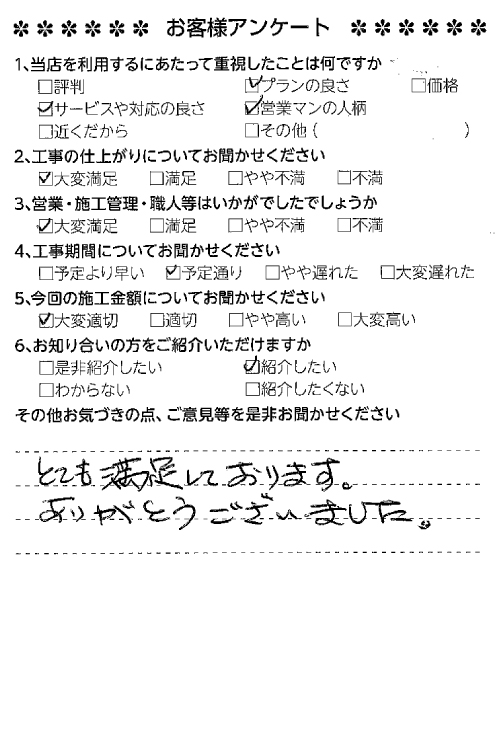 ✽✽✽✽✽✽ お客様アンケート ✽✽✽✽✽✽
1、当店を利用するにあたって重視したことは何ですか
□評判 ☑プランの良さ □価格
☑サービスや対応の良さ ☑営業マンの人柄
□近くだから □その他( )
2、工事の仕上がりについてお聞かせください
☑大変満足 □満足 □やや不満 □不満
3、営業・施工管理・職人等はいかがでしたでしょうか
☑大変満足 □満足 □やや不満 □不満
4、工事期間についてお聞かせください
□予定より早い ☑予定通り □やや遅れた □大変遅れた
5、今回の施工金額についてお聞かせください
☑大変適切 □適切 □やや高い □大変高い
6、お知り合いの方をご紹介いただけますか
□是非紹介したい ☑紹介したい
□わからない □紹介したくない
その他お気づきの点、ご意見等を是非お聞かせください
とても満足しております。
ありがとうございました。